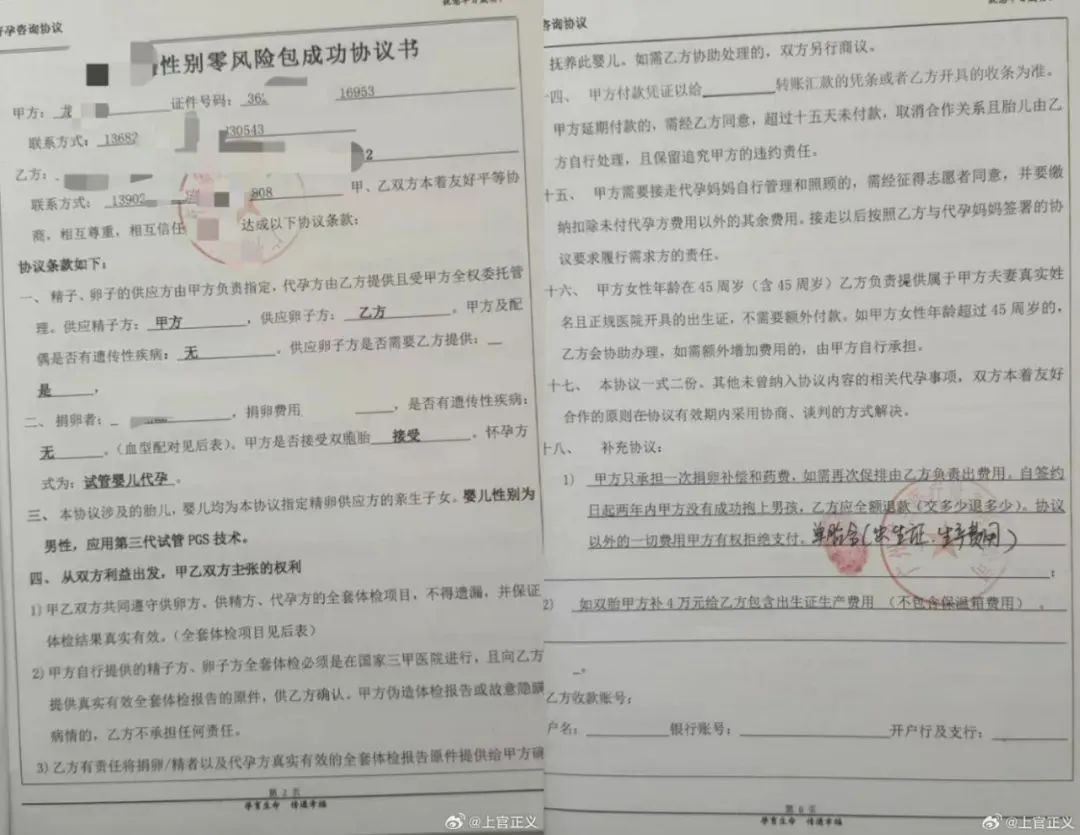 孕咨询协议
性别零风险包成功协议书
甲方：龙 证件号码：36 16953
联系方式：13682 330543
乙方： 2
联系方式：13902 808 甲、乙双方本着友好平等协
商，相互尊重，相互信任 达成以下协议条款：
协议条款如下：
一、精子、卵子的供应方由甲方负责指定，代孕方由乙方提供且受甲方全权委托管
理。供应精子方：甲方，供应卵子方：乙方。甲方及配
偶是否有遗传性疾病：无。供应卵子方是否需要乙方提供：
是，
二、捐卵者： ，捐卵费用 ，是否有遗传性疾病：
无。（血型配对见后表）。甲方是否接受双胞胎接受。怀孕方
式为：试管婴儿代孕。
三、本协议涉及的胎儿，婴儿均为本协议指定精卵供应方的亲生子女。婴儿性别为
男性，应用第三代试管PGS技术。
四、从双方利益出发，甲乙双方主张的权利
1)甲乙双方共同遵守供卵方、供精方、代孕方的全套体检项目，不得遗漏，并保证
体检结果真实有效。（全套体检项目见后表）
2)甲方自行提供的精子方、卵子方全套体检必须是在国家三甲医院进行，且向乙方
提供真实有效全套体检报告的原件，供乙方确认。甲方伪造体检报告或故意隐瞒
病情的，乙方不承担任何责任。
3)乙方有责任将捐卵/精者以及代孕方真实有效的全套体检报告原件提供给甲方确
第 2 页
孕育生命 传递幸福
咨询协议
抚养此婴儿。如需乙方协助处理的，双方另行商议。
十四、甲方付款凭证以给________转账汇款的凭条或者乙方开具的收条为准。
甲方延期付款的，需经乙方同意，超过十五天未付款，取消合作关系且胎儿由乙
方自行处理，且保留追究甲方的违约责任。
十五、甲方需要接走代孕妈妈自行管理和照顾的，需经征得志愿者同意，并要缴
纳扣除未付代孕方费用以外的其余费用。接走以后按照乙方与代孕妈妈签署的协
议要求履行需求方的责任。
十六、甲方女性年龄在45周岁（含45周岁）乙方负责提供属于甲方夫妻真实姓
名且正规医院开具的出生证，不需要额外付款。如甲方女性年龄超过45周岁的，
乙方会协助办理，如需额外增加费用的，由甲方自行承担。
十七、本协议一式二份。其他未曾纳入协议内容的相关代孕事项，双方本着友好
合作的原则在协议有效期内采用协商、谈判的方式解决。
十八、补充协议：
1) 甲方只承担一次捐卵补偿和药费，如需再次促排由乙方负责出费用。自签约
日起两年内甲方没有成功抱上男孩，乙方应全额退款（交多少退多少）。协议
以外的一切费用甲方有权拒绝支付。单胎含(出生证、生产费用)
；
2) 如双胎甲方补4万元给乙方包含出生证生产费用（不包含保温箱费用）。
。
乙方收款账号：
户名：________银行账号：________开户行及支行：________
第 6 页
孕育生命 传递幸福
@上官正义
@上官正义